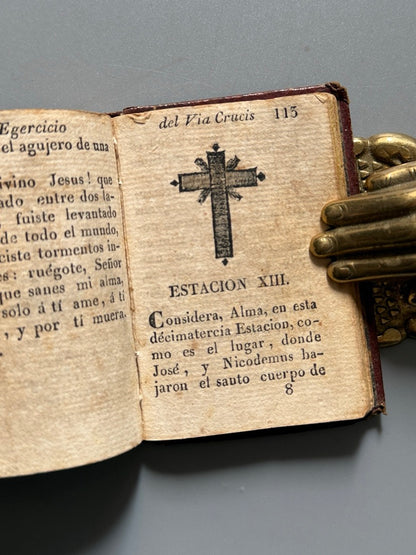 Egercicio
el agujero de una
ivino Jesus! que
ado entre dos la-
fuiste levantado
de todo el mundo,
ciste tormentos in-
es: ruégote, Señor
que sanes mi alma,
solo á tí ame, á tí
, y por tí muera.
del Via Crucis 113
ESTACION XIII.
Considera, Alma, en esta
décimatercia Estacion, co-
mo es el lugar, donde
José, y Nicodemus ba-
jaron el santo cuerpo de
8